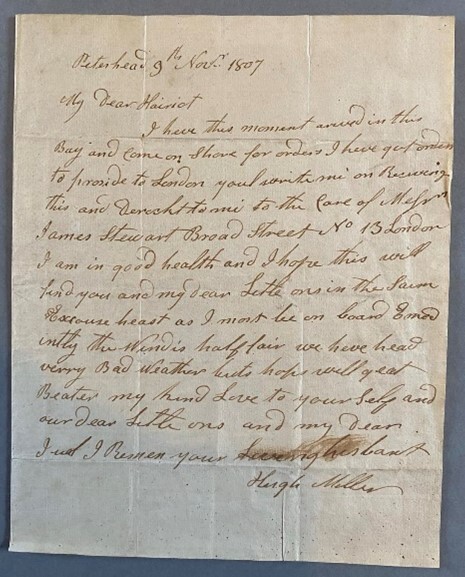 Peterhead 9th Novr. 1807
My Dear Hairiot
I have this moment arived in this
Bay and Come on Shore for orders I have got orders
to proside to London youl write mi on Receiving
this and Derackt to mi to the Care of Messrs
James Stewart Broad Street No 13 London
I am in good health and I hope this will
find you and my dear Little ons in the Saim
Excouse heast as I most be on board Emed
intly the Wind is half fair we heve head
verry Bad Weather buts hops will geat
Beater my kind Love to your Self and
our dear Little ons and my dear
I Remen your Loveing husbant
Hugh Miller